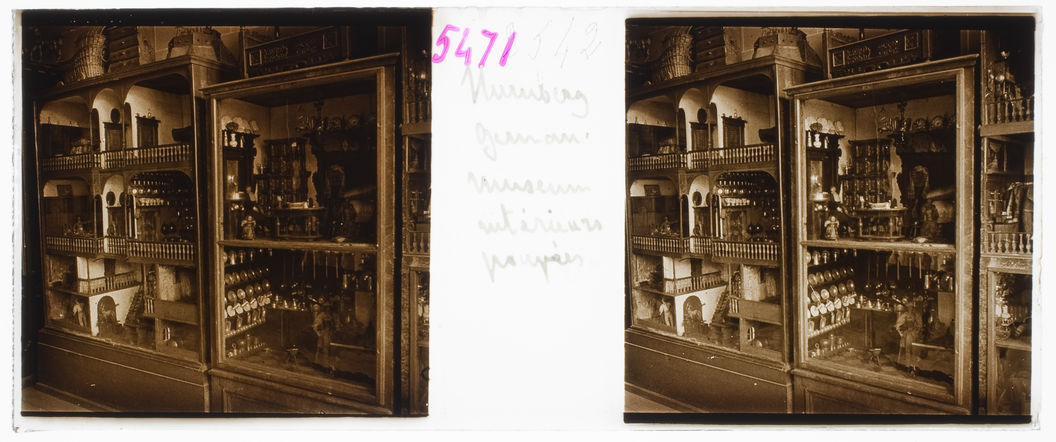 5471 542
Nurnberg
German.
museum
intérieurs
poupées